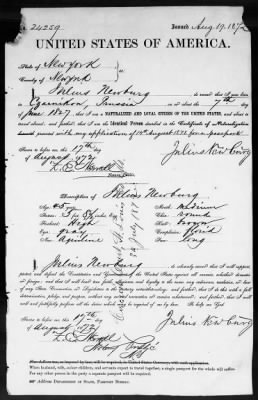 No 24259 Issued Aug 19. 1872
UNITED STATES OF AMERICA.
State of New York
County of New York
I, Julius Newburg do swear that I was born
in Czarnikow, Prussia on or about the 7th day
of June 1827, that I am a NATURALIZED AND LOYAL CITIZEN OF THE UNITED STATES, and
that I am the Identical Person described in the Certificate of Naturalization
presented with my application of for a passport
Sworn to before me, this 17th day
of August 1872
Julius Newburg
Notary Public.
Description of Julius Newburg
Age: 45 years Mouth: medium
Stature: Chin: round
Forehead: High Hair: brown
Eyes: gray Complexion: florid
Nose: Aquiline Face: long
I, Julius Newburg do solemnly swear that I will support,
protect and defend the Constitution and Government of the United States against all enemies, whether domestic
or foreign; and that I will bear true faith, allegiance and loyalty to the same, any ordinance, resolution, or law
of any State Convention or Legislature to the contrary notwithstanding; and further, that I do this with a full
determination, pledge and purpose, without any mental reservation or evasion whatsoever; and further, that I will
well and faithfully perform all the duties which may be required of me by law. So help me God.
Sworn to before me, this 17th day
of August 1872
Julius Newburg
Notary Public
When husband, wife, minor children, and servants expect to travel together, a single passport for the whole will suffice.
For any other person in the party a separate passport will be required.
ADDRESS DEPARTMENT OF STATE, PASSPORT BUREAU.